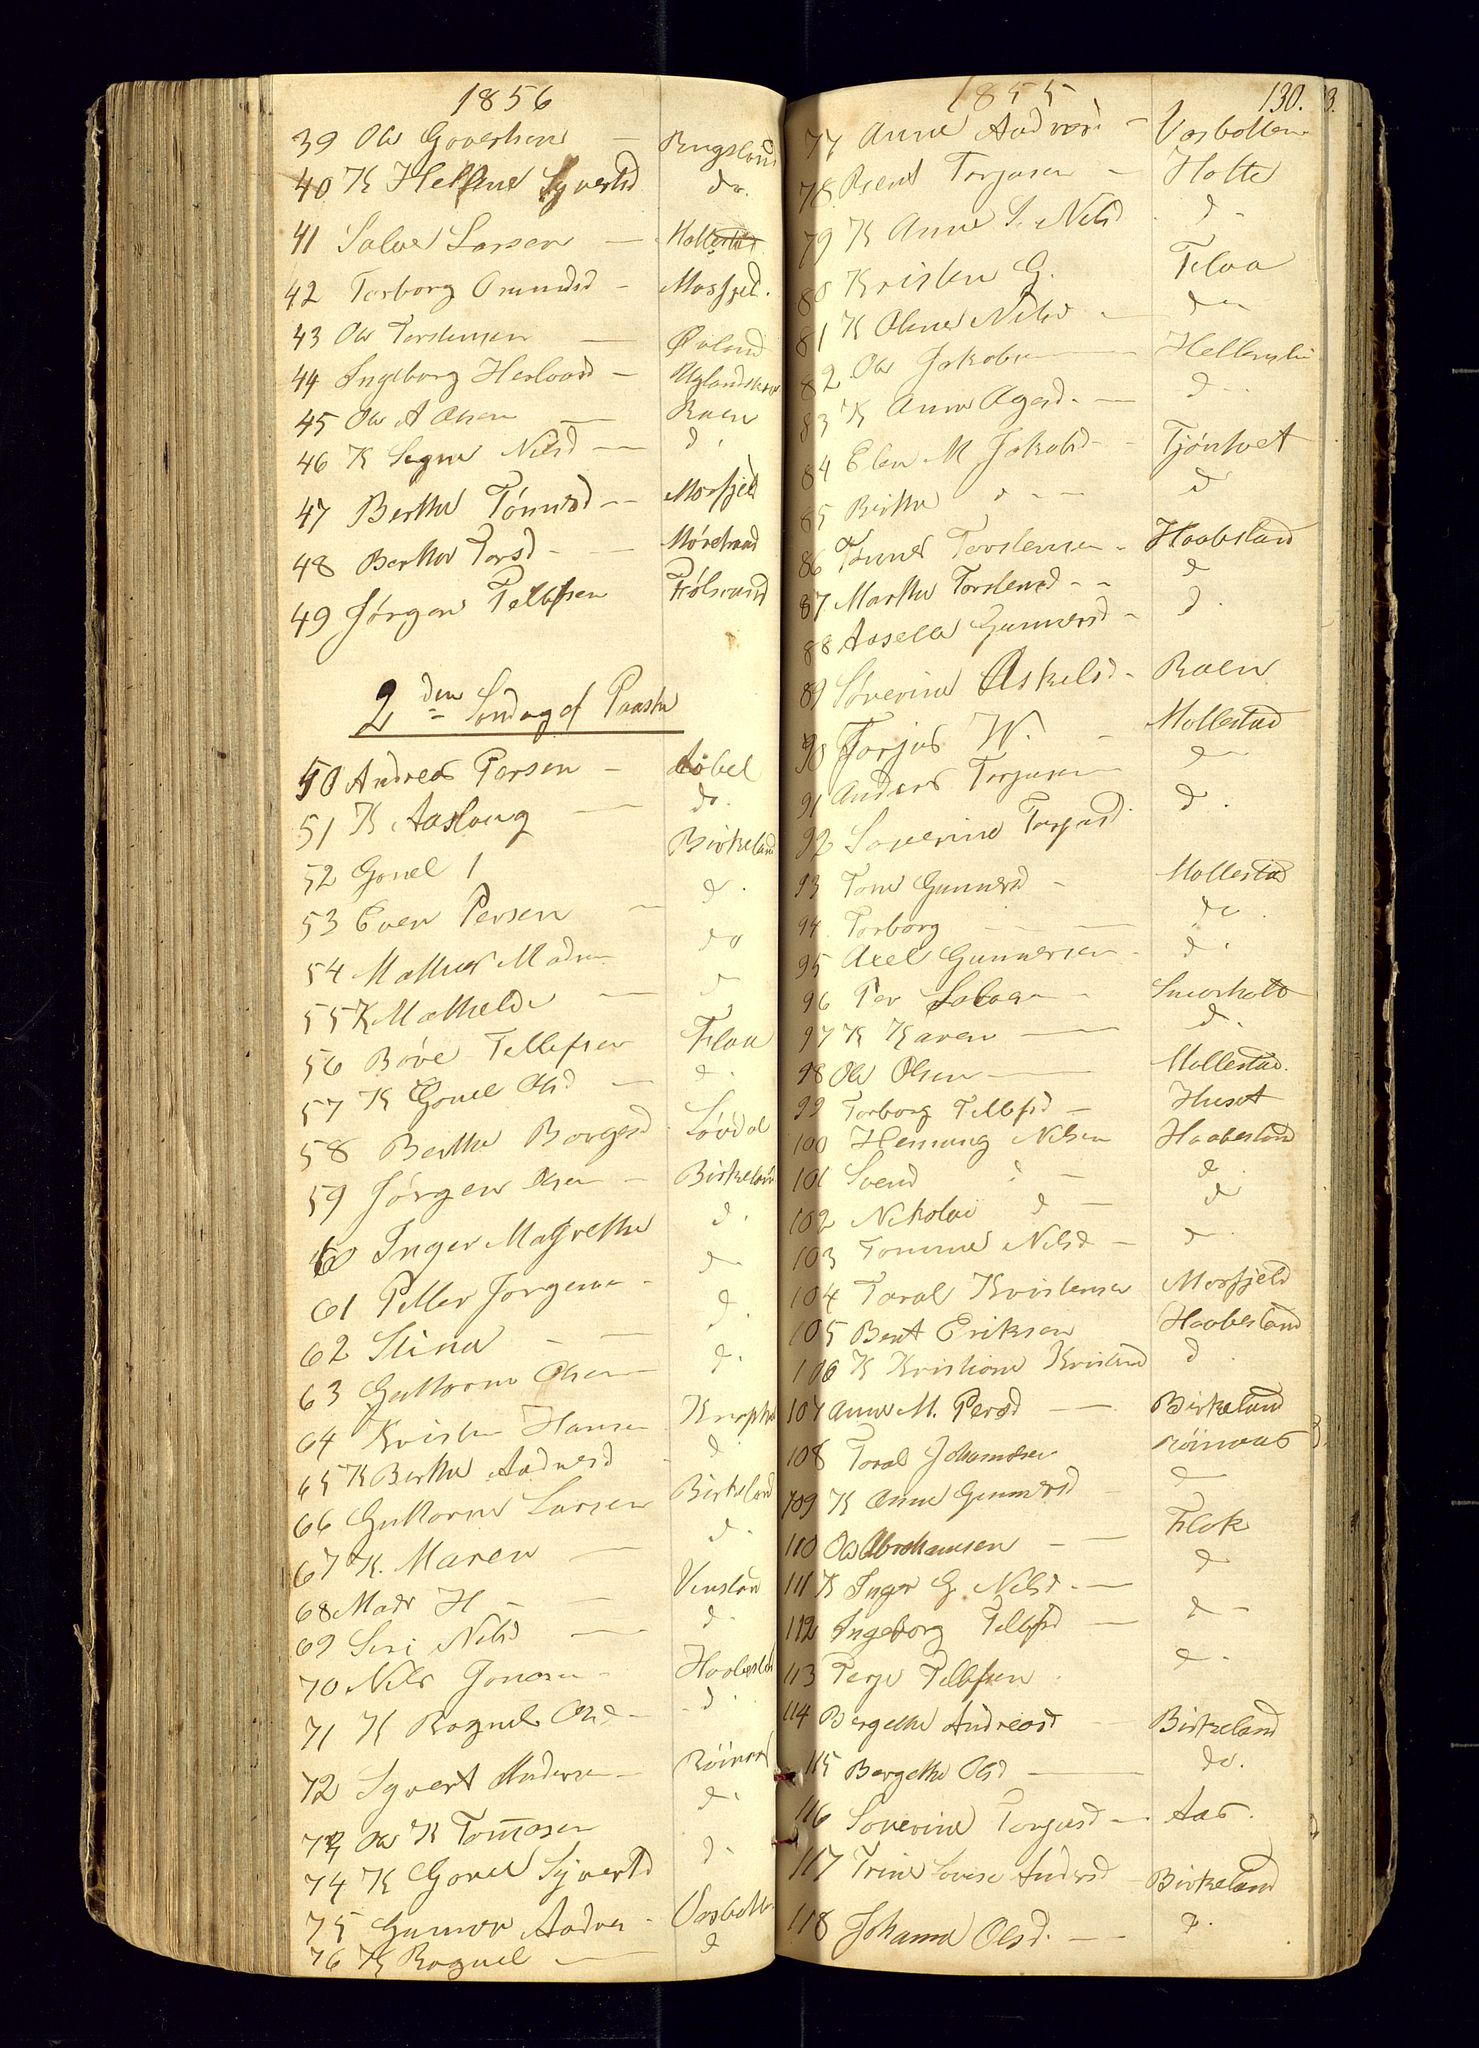 1856
39 Ole Govertsen — Rugsland
40 K Hellene Syvertsd do.
41 Salve Larsen — Mollestad
42 Torborg Omundsd - Mosfjeld.
43 Ole Torstensen — Øvland
44 Ingeborg Herlovsd — Uglandskaas
45 Ole A Olsen — Raen
46 K Signe Nilsd — d.
47 Berthe Tønnesd — Mosfjeld
48 Berthe Torsd - — 
49 Jørgen Tellefsen
2den Søndag ef Paaske
50 Andreas Persen —
51 K Aaslaug — do.
52 Gonel 1 Birkeland
53 Even Persen — d.
54 Mathias Madsen do
55 K Mathilde — d
56 Bøve Tellefsen Flaa
57 K Gonel Olsd — d.
58 Berthe Borgesd Løvdal
59 Jørgen Olsen — Birkeland
60 Inger Magrethe d.
61 Peller Jørgensen - d
62 Stine — — d.
63 Guttorm Olsen d.
64 Kristen Hansen
65 K Berthe Aadnesd d
66 Guttorm Larsen Birkeland
67 K. Maren — d.
68 Mads H — — Vinsland
69 Siri Nilsd — d
70 Nils Jonasen — Haabesland
71 K Ragnild Olsd — d.
72 Syvert Andersen — Røinaas
73 Ole K Tom̅asen d.
74 K Gonel Syvertsd d.
75 Gunner Aadnes - Vasbotten
76 K Ragnel — d
1855 130.
77 Anne Aadnesd — Vasbotten
78 Bent Torjusen — Holte
79 K Anne S. Nilsd d -
80 Kristen G. Flaa
81 K Oline Nilsd — do
82 Ole Jakobsen — Hellerslia
83 K Anne Agesd. — d -
84 Elen M Jakobsd - - Tjøntvet
85 Birthe d - - — d
86 Tønnes Torstensen - Haabesland
87 Marthe Torstensd - - d
88 Aasille Gunnersd - d.
89 Søverine Askelsd - Raen
90 Torjus W. - Mollestad
91 Anders Torjusen — d
92 Søverine Torjusd. d.
93 Tone Gunnersd - Mollestad
94 Torborg — — — do.
95 Axel Gunnersen - d.
96 Per Salvesen - Smørholt
97 K Karen — d.
98 Ole Olsen — Mollestad.
99 Torborg Tellefsd — Huset
100 Henning Nilsen Haabesland
101 Svend d — d.
102 Nikolai d — d
103 Tomine Nilsd — d
104 Taral Kristensen Mosfjeld
105 Bent Eriksen Haabesland
106 K Kristiane Kristensd d.
107 Anne M. Persd — Birkeland
108 Toral Johannesen Røinaas
109 K Anne Gunnersd - d
110 Ole Abrahamsen — Flak
111 K Inger G Nilsd. — d
112 Ingeborg Tellefsd — d —
113 Terje Tellefsen d -
114 Bergethe Andreasd — Birkeland
115 Bergethe Olsd — do.
116 Søverine Torjusd — Aas.
117 Trine Lovise Andersd Birkeland
118 Johanne Olsd. — — d.